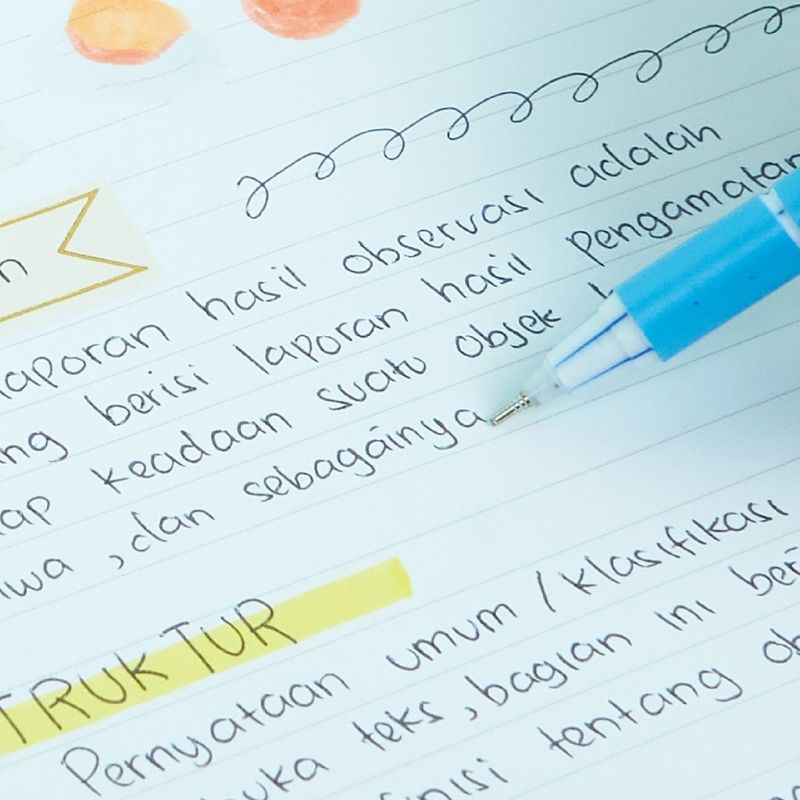 n
laporan hasil observasi adalah
ng berisi laporan hasil pengamatan
ap keadaan suatu objek
iwa , dan sebagainya
TRUKTUR
Pernyataan umum / klasifikasi
uka teks, bagian ini ber
inisi tentang ob